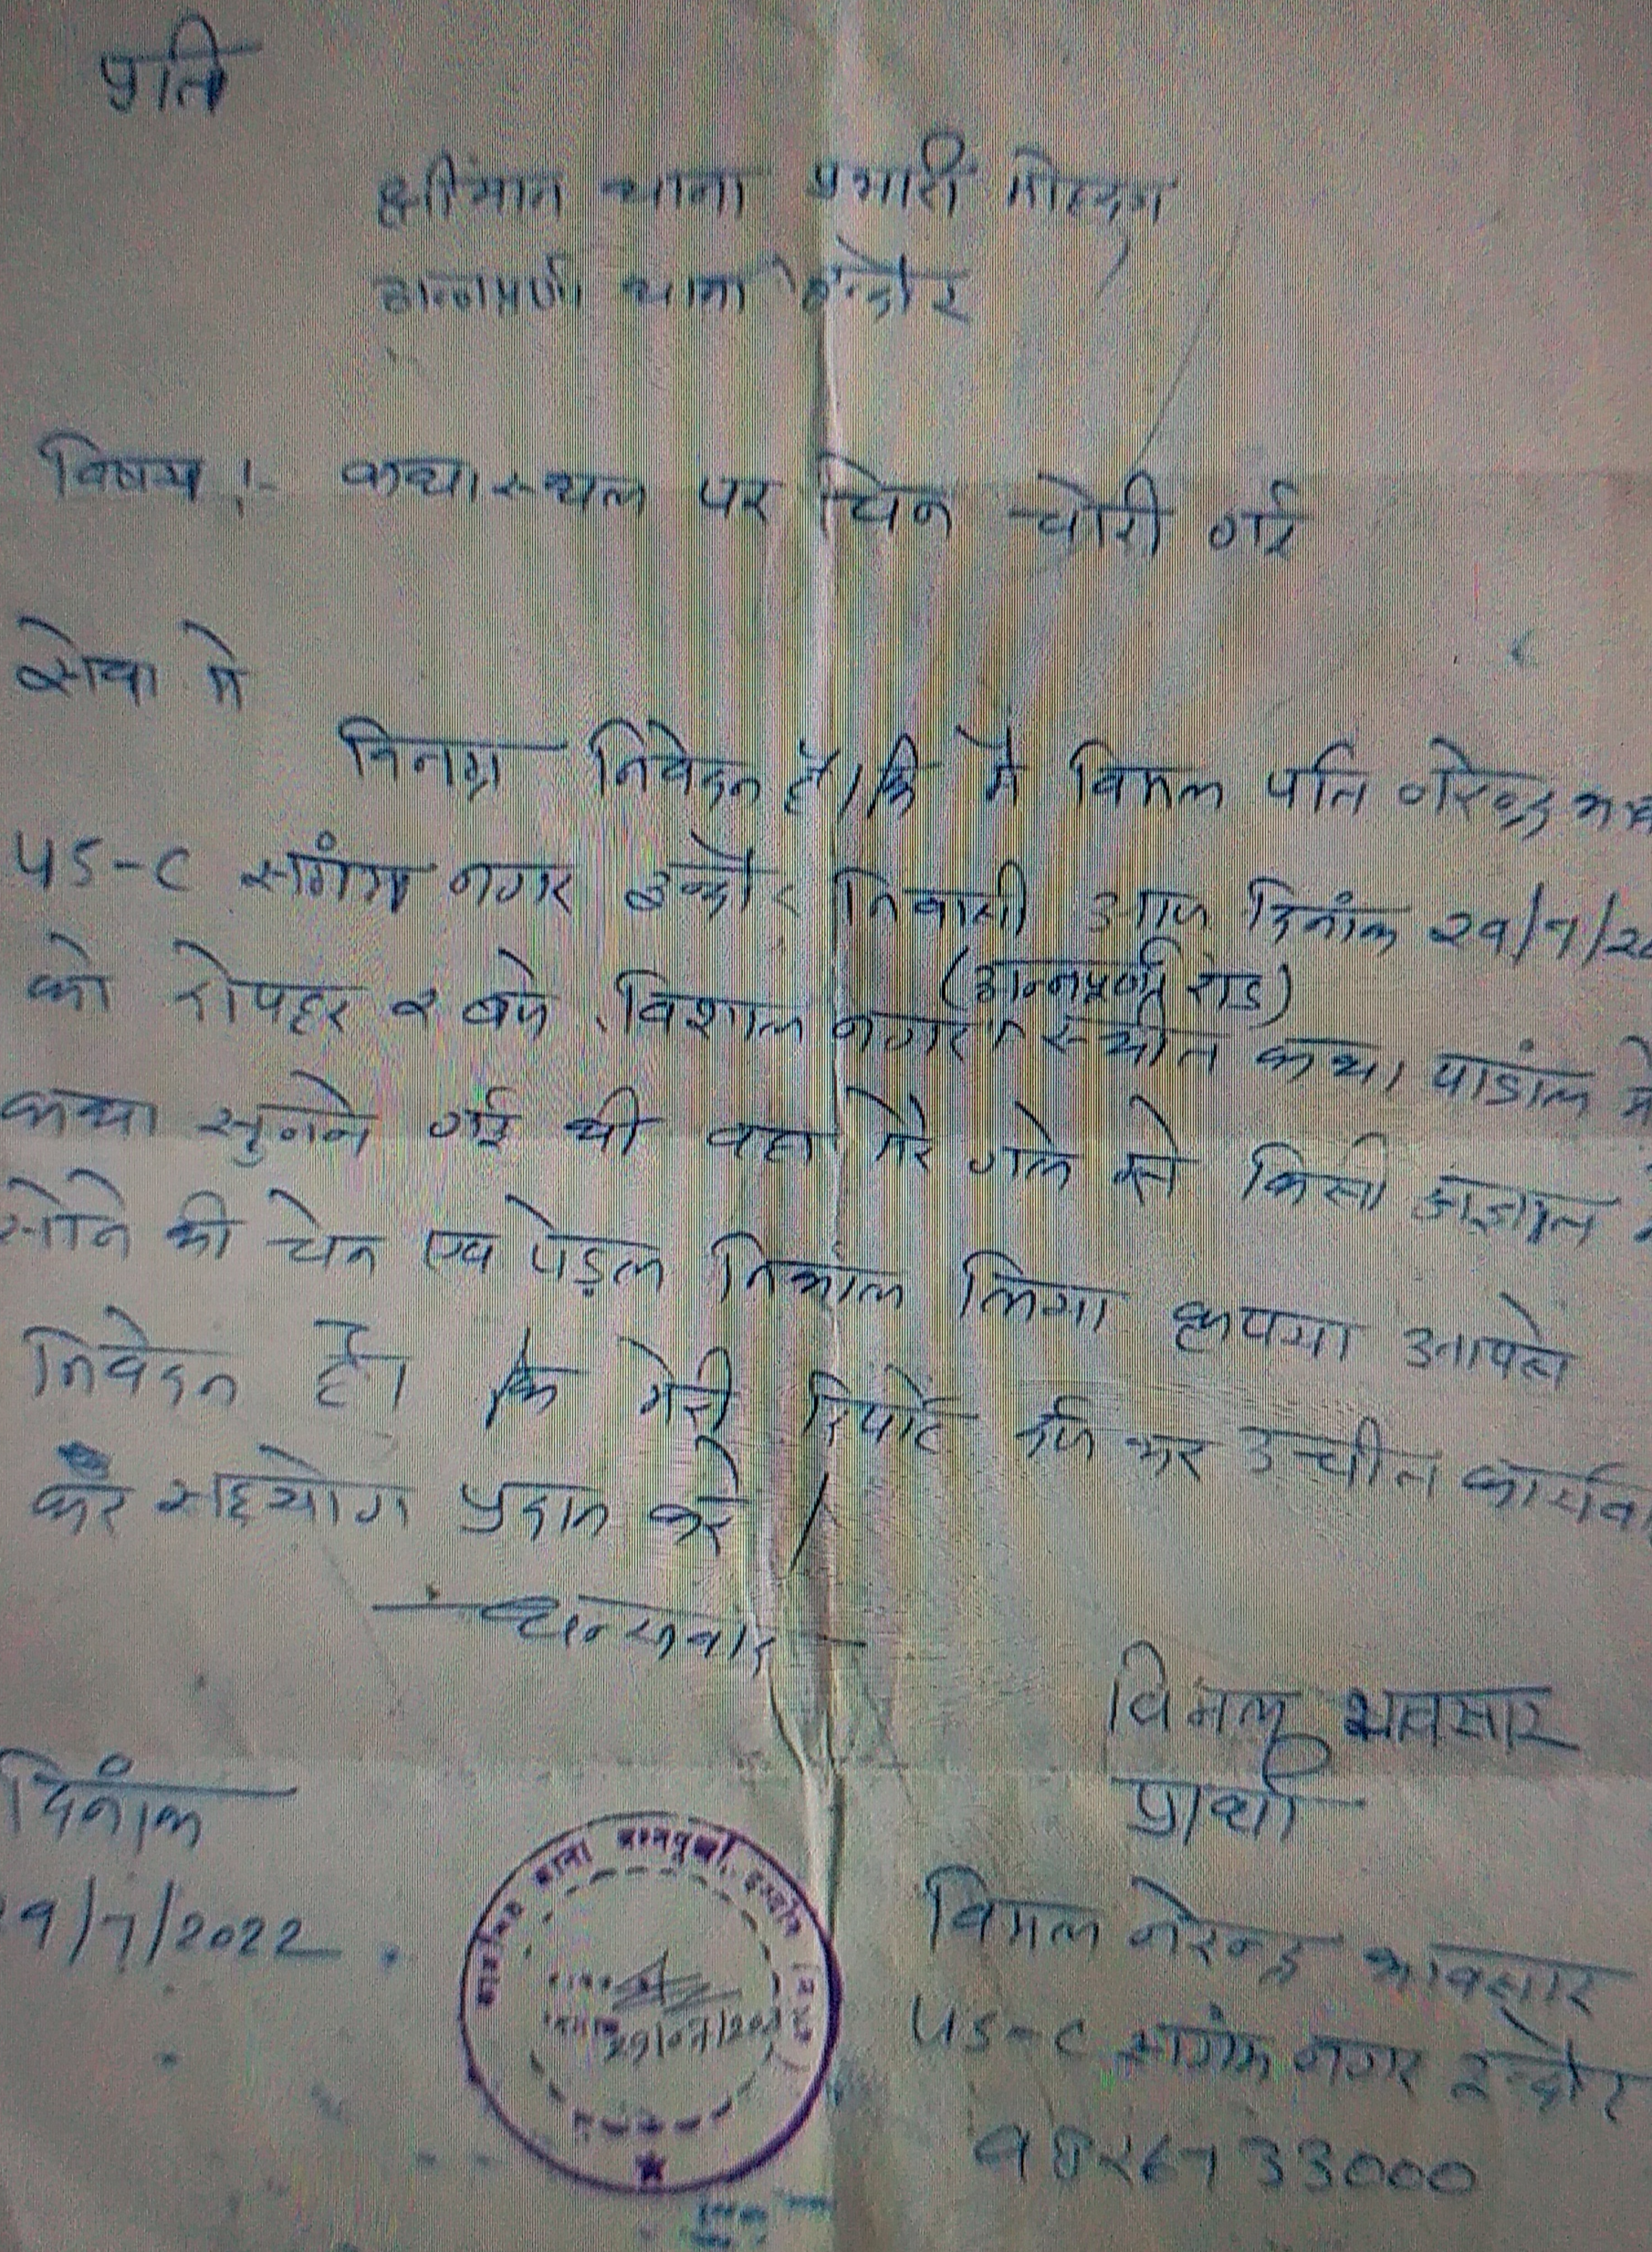 प्रति
श्रीमान थाना प्रभारी महोदय
अन्नपूर्णा थाना इन्दौर
विषय :- कथा स्थल पर चेन चोरी गई
सेवा मे
विनम्र निवेदन है। कि मै विमल पति नरेन्द्र
45-C सांगम नगर इन्दौर निवासी आज दिनांक 29/7/20
(अन्नपूर्णा रोड)
को दोपहर 2 बजे विशाल नगर स्थीत कथा पांडाल मे
कथा सुनने गई थी वहा मेरे गले से किसी अज्ञात
सोने की चेन एव पेंडल निकाल लिया कृपया आपसे
निवेदन है। कि मेरी रिपोर्ट दर्ज कर उचीत कार्यवा
कर सहयोग प्रदान करे।
धन्यवाद
विमल भावसार
प्रार्थी
दिनांक
9/7/2022
विमल नरेन्द्र भावसार
45-C सांगम नगर इन्दौर
9826733000
थाना अन्नपूर्णा, इन्दौर
29/07/202